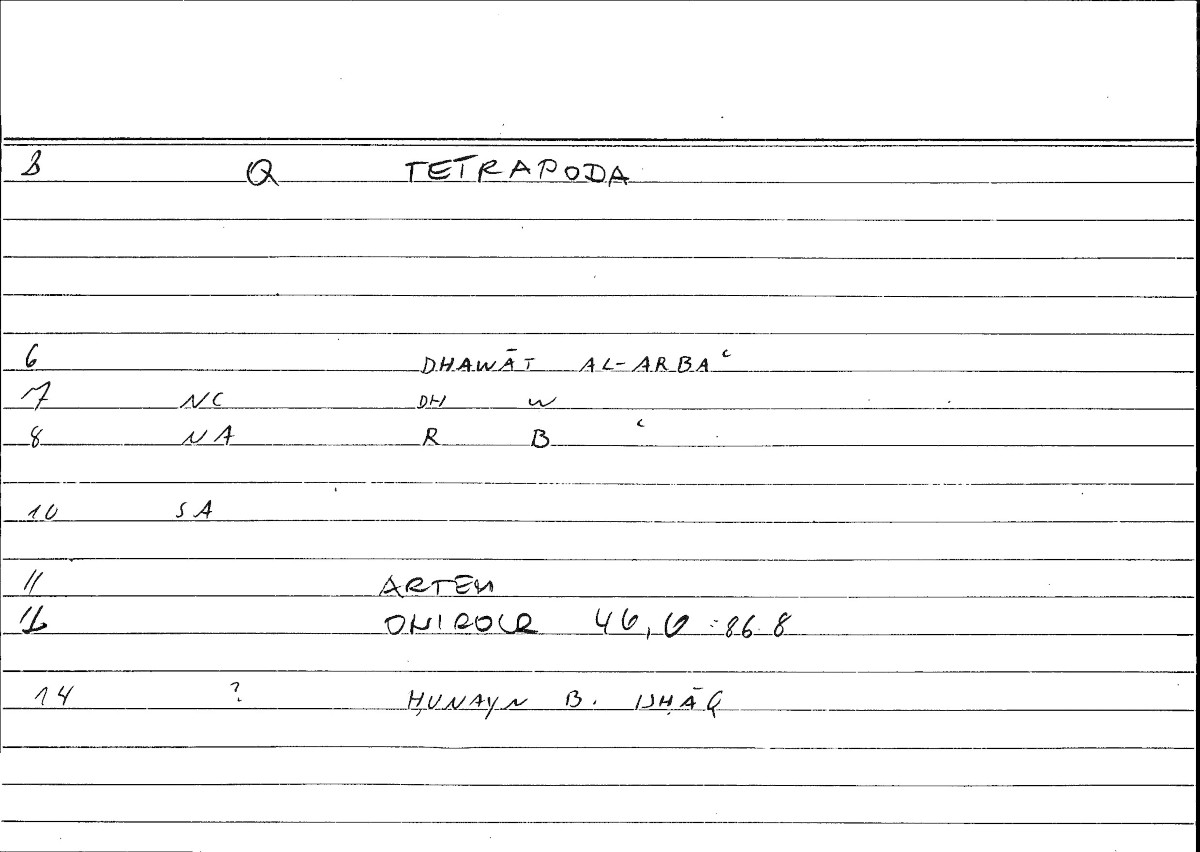 3 Q TETRAPODA
6 DHAWĀT AL-ARBAʿ
7 NC DH W
8 NA R B ʿ
10 SA
11 ARTEM
ONIROCR 46,6 = 86.8
14 ? ḤUNAYN B. ISḤĀQ